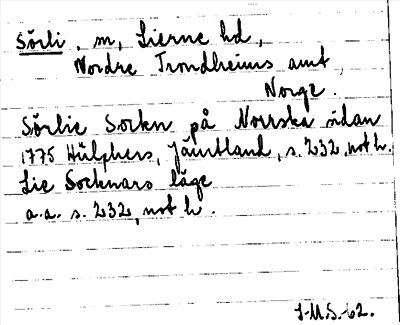 Sörli, m, Lierne hd,
Nordre Trondheims amt,
Norge.
Sörlie Sockn på Norrska sidan
1775 Hülphers, Jämtland, s. 232, not h.
Lie Socknars läge
a.a. s. 232, not h.
J-M.S. 62.